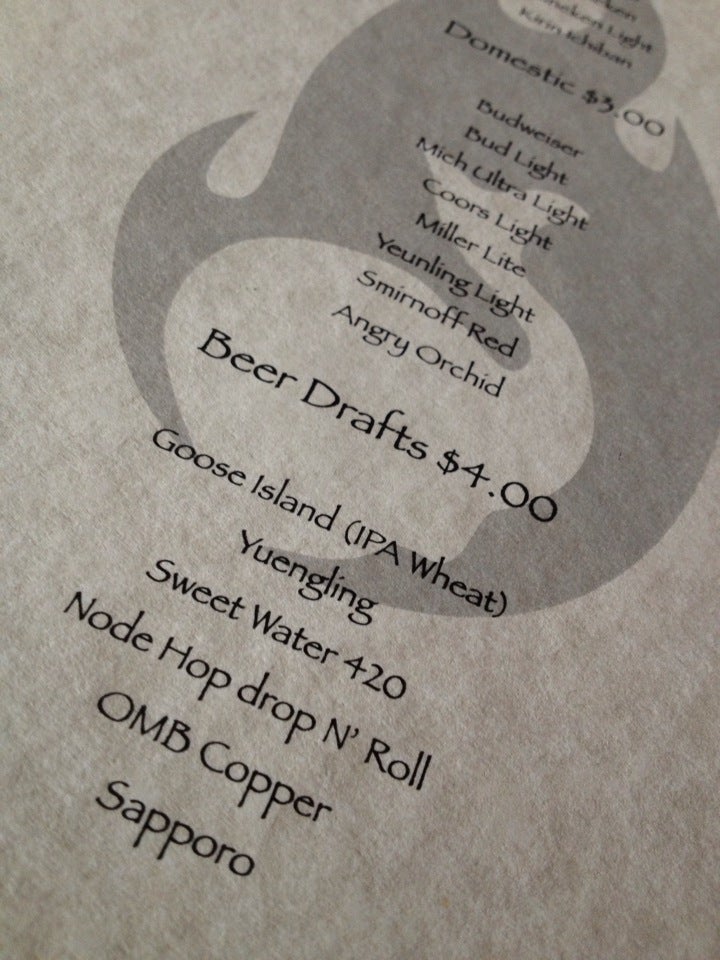 Light
Kirin Ichiban
Domestic $3.00
Budweiser
Bud Light
Mich Ultra Light
Coors Light
Miller Lite
Yeunling Light
Smirnoff Red
Angry Orchid
Beer Drafts $4.00
Goose Island (IPA Wheat)
Yuengling
Sweet Water 420
Node Hop drop N' Roll
OMB Copper
Sapporo